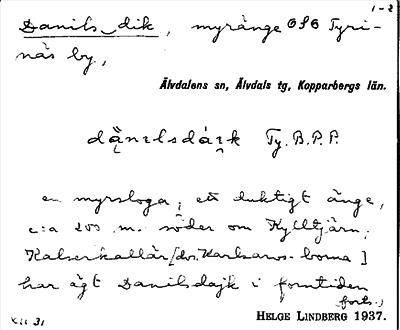 1-2
Danils_dik, myränge OSO Tyri-
näs by,
Älvdalens sn, Älvdals tg, Kopparbergs län.
Ty. B.P.P.
en myrsloga; ett duktigt änge,
c:a 200 m. söder om Kylltjärn;
Kalserkallär [dvs Karlsarvs-borna]
har ägt Danilsdajk i forntiden
(forts.)
XII 31 HELGE LINDBERG 1937.